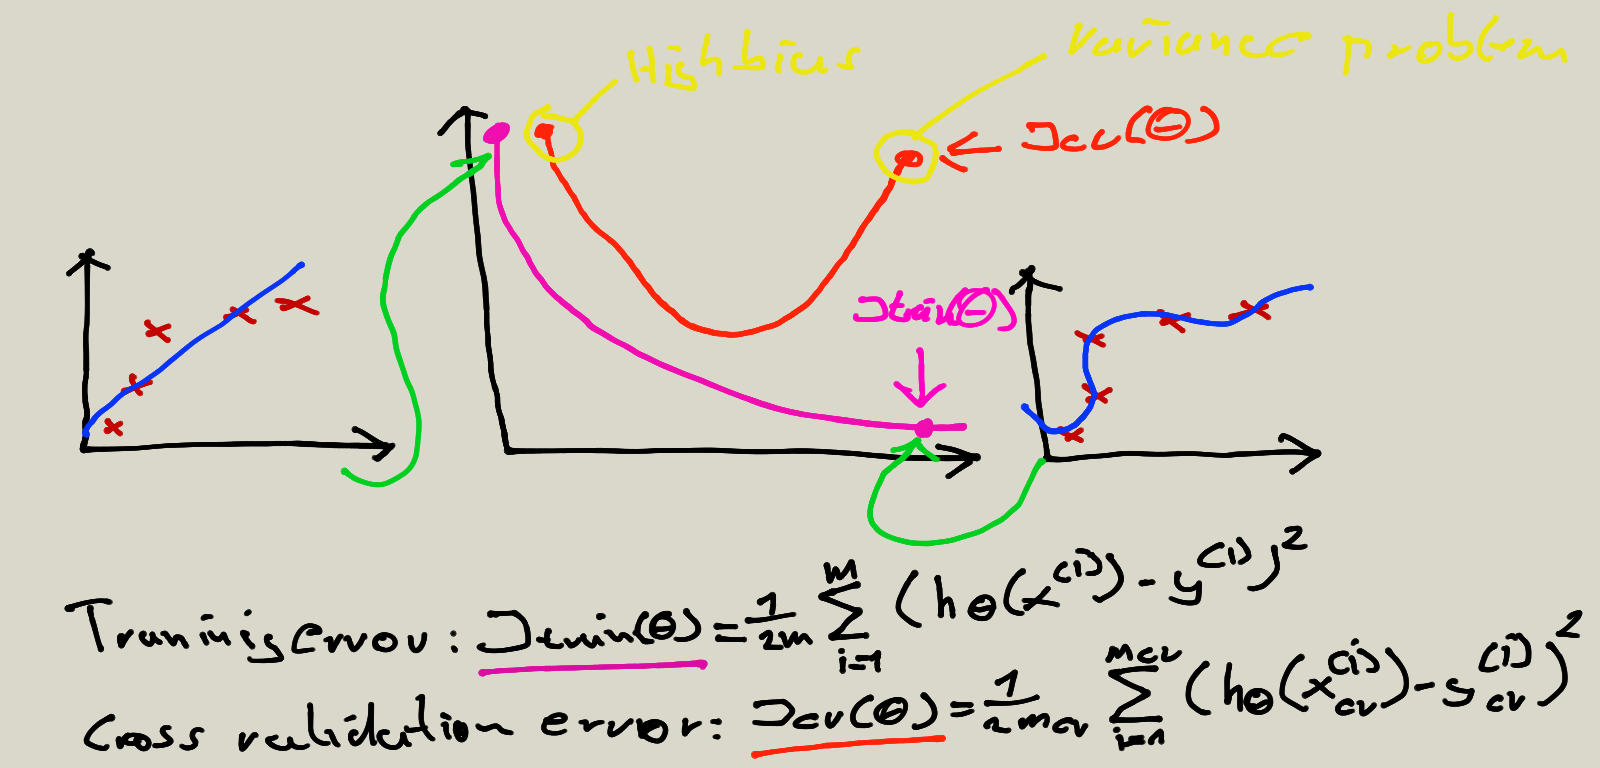 High bias
Variance problem
Jcv(Θ)
Jtrain(Θ)
Training error: Jtrain(Θ) = 1/2m Σ i=1 m (hΘ(x^(i)) - y^(i))^2
Cross validation error: Jcv(Θ) = 1/2mcv Σ i=1 mcv (hΘ(xcv^(i)) - ycv^(i))^2